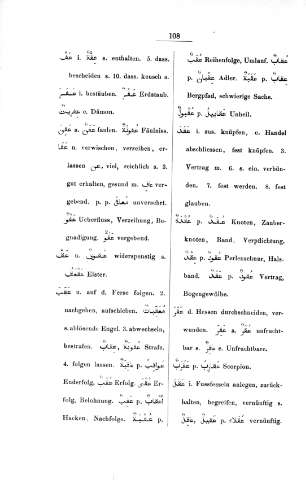 108
عفّ i. عفّة a. enthalten. 5. dass.
bescheiden a. 10. dass. keusch a.
عفر i. bestäuben. عفر Erdstaub.
عفريت e. Dämon.
عفن a. عفن faulen. عفونة Fäulniss.
عفا u. verwischen, verzeihen, er-
lassen عن, viel, reichlich a. 3.
gut erhalten, gesund m. عاف ver-
gebend. p. p. unversehrt.
عفو Ueberfluss, Verzeihung, Be-
gnadigung. عفوّ vergebend.
عقّ u. عقوق widerspenstig a.
عقعق Elster.
عقب u. auf d. Ferse folgen. 2.
nachgehen, aufschieben.
a. ablösende Engel. 3. abwechseln,
bestrafen. عقاب, عقوبة Strafe.
4. folgen lassen. عقبة p. عواقب
Enderfolg. عقب Erfolg. عقب Er-
folg, Belohnung. عقب p. أعقاب
Hacken, Nachfolge. عقبة p.
عقاب Reihenfolge, Umlauf. عقاب
p. عقبان Adler. عقبة p. عقاب
Bergpfad, schwierige Sache.
عقبول p. عقابيل Unheil.
عقد i. aus. knüpfen, e. Handel
abschliessen, fest knüpfen. 3.
Vertrag m. 6. s. ein. verbün-
den. 7. fest werden. 8. fest
glauben.
عقدة p. عقد Knoten, Zauber-
knoten, Band. Verpflichtung.
عقد p. عقود Perlenschnur, Hals-
band. عقد p. عقود Vertrag,
Bogengewölbe.
عقر i. d. Hessen durchschneiden, ver-
wunden. عقر a. عقر unfrucht-
bar s. عقر s. Unfruchtbare.
عقرب p. عقارب Scorpion.
عقل i. Fussfesseln anlegen, zurück-
halten, begreifen, vernünftig.
عقل, عقيل p. عقلاء vernünftig.